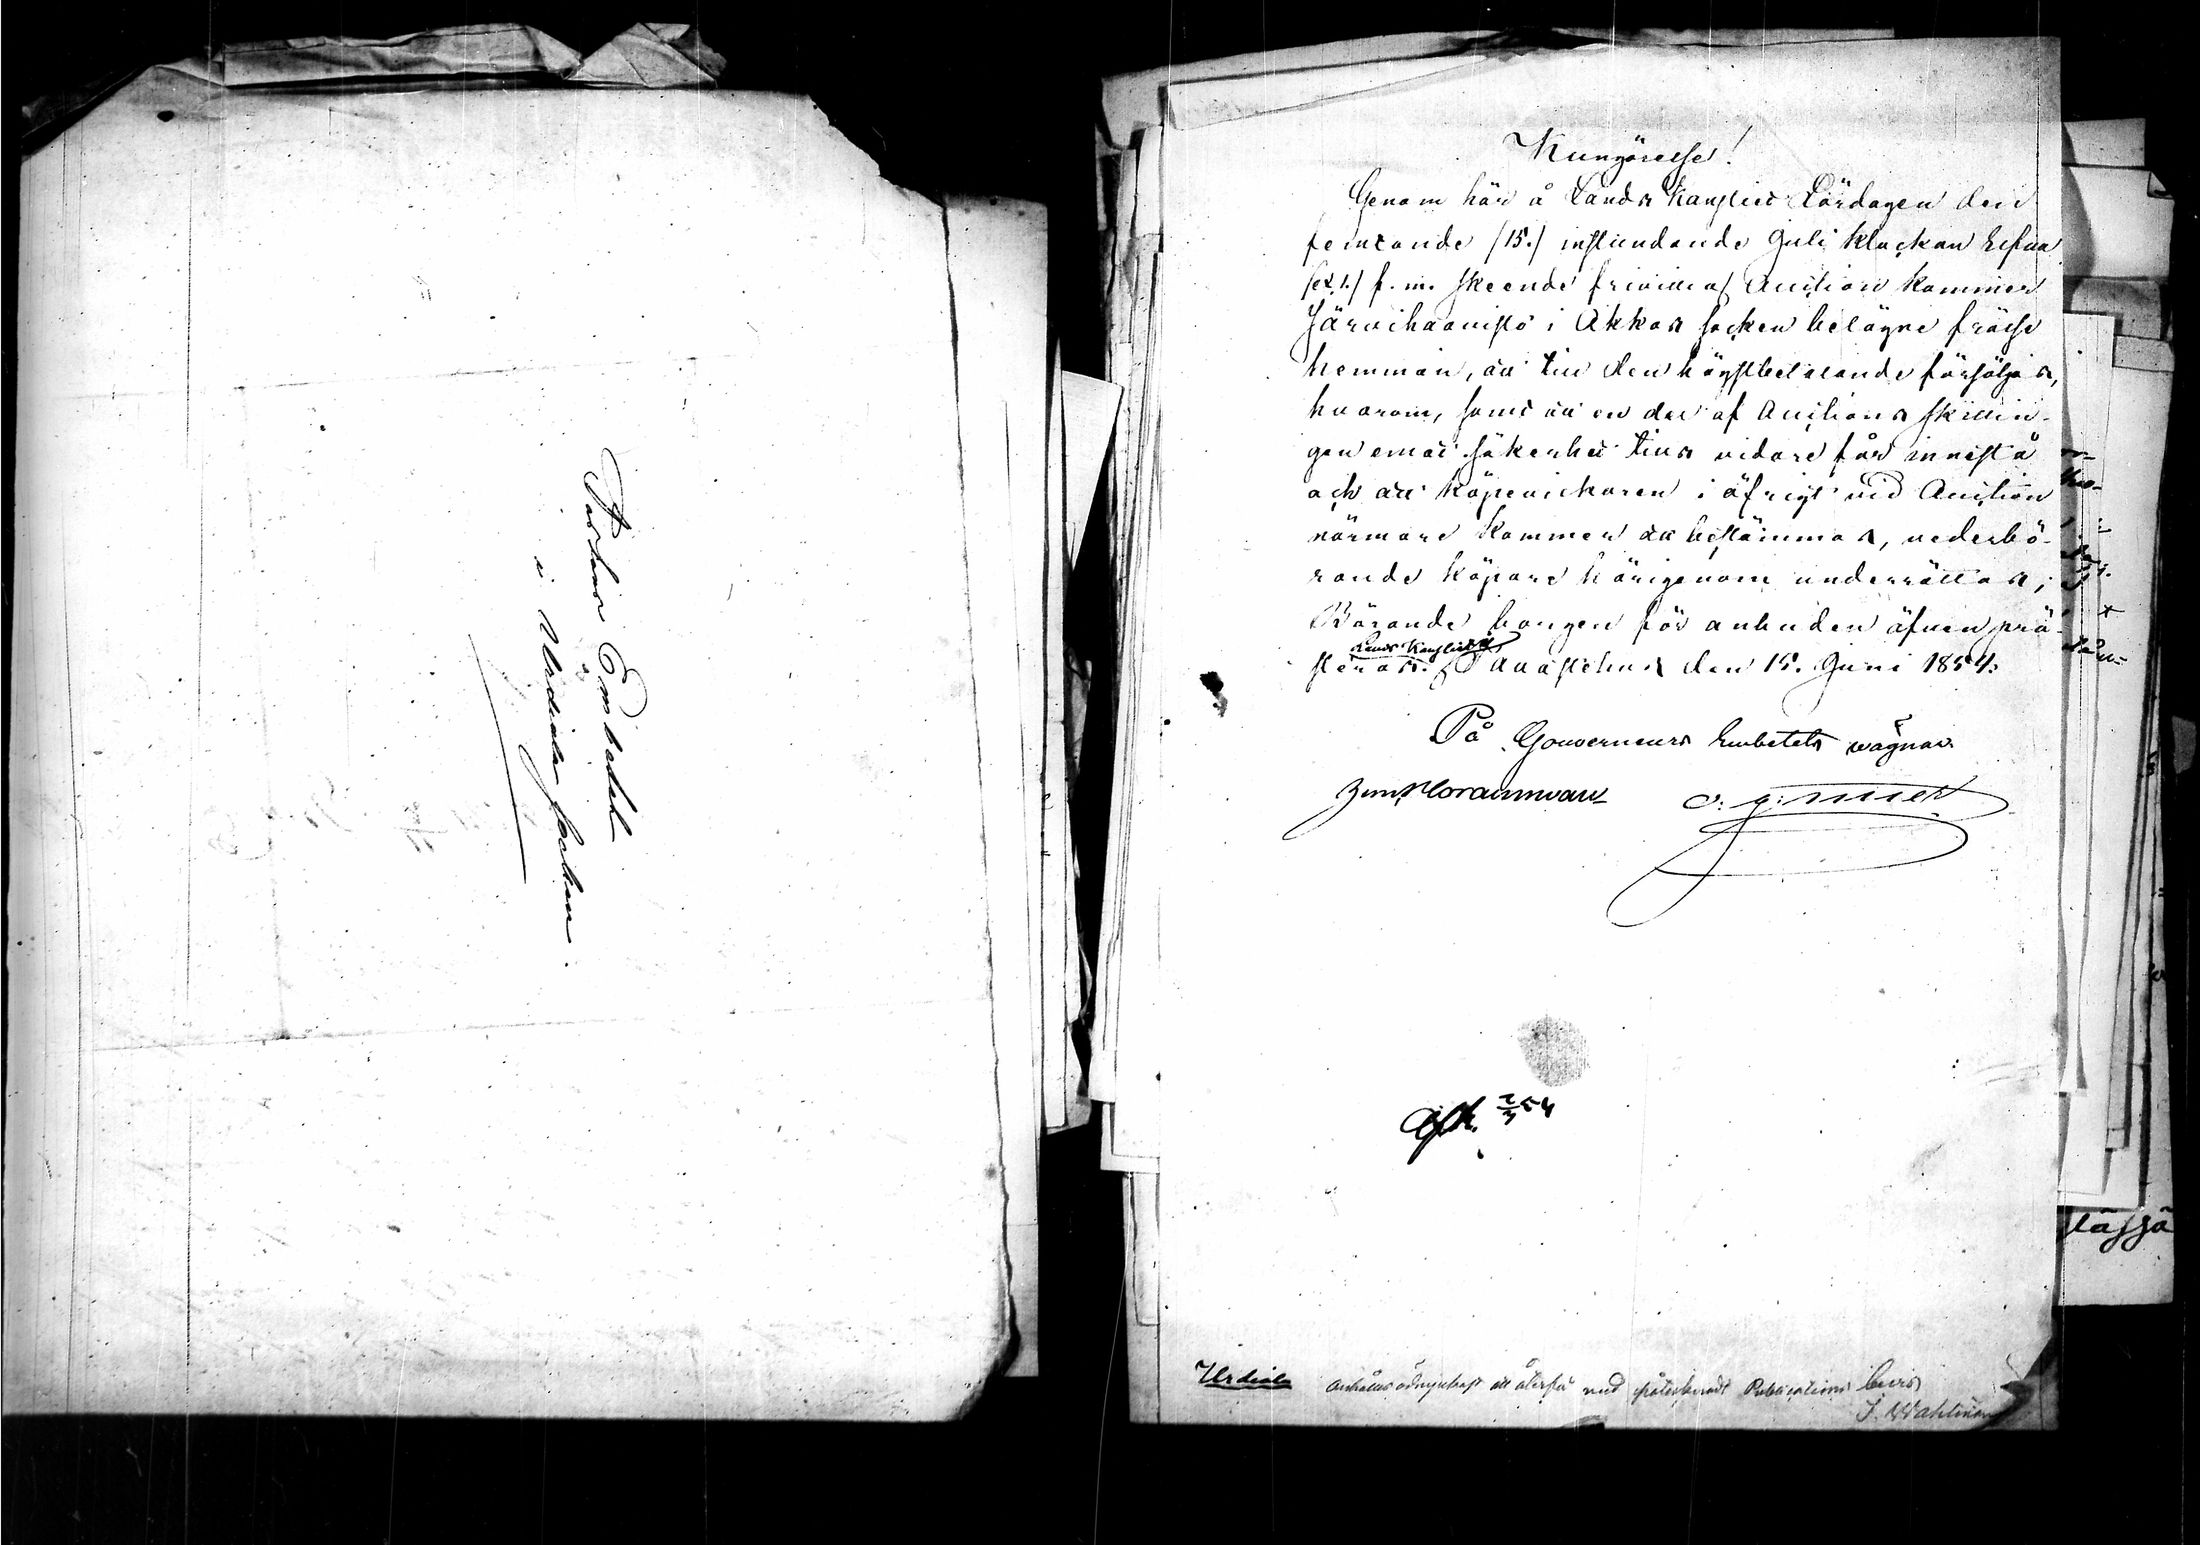 Pastors Embetet
i Urdiala socken.
Kungörelse!
Genom här å Lands Kansliet Lördagen den
femtonde /15./ instundande Juli klockan Elfva
/11./ f. m. skeende frivillig Auction kommer
Järvihaavisto i Akkas socken belägne frälse
hemman, att till den högstbetalande försäljas,
hvarom, samt att en del af Auctions skillin-
gen emot säkerhet tills vidare får innestå
och att köpevilkoren i öfrigt vid Auction
närmare kommer att bestämmas, vederbö-
rande köpare härigenom underrättas;
Börande borgen för anbuden äfven præ-
steras. Lands Kansliet i Tavastehus den 15. Juni 1854.
På Gouverneurs Embetets vägnar
Upl. 2/7 54
Urdiala anhålles ödmjukast att återfå med påtecknadt Publications bevis
J. Wahlman